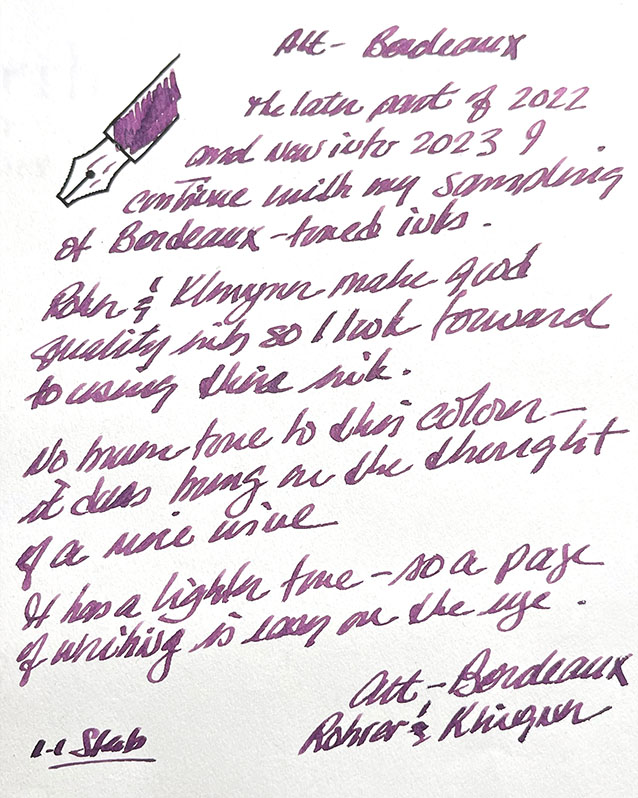 Alt - Bordeaux
The later part of 2022
and now into 2023 I
continue with my sampling
of Bordeaux-toned inks.
Rohrer & Klingner make good
quality inks so I look forward
to using this ink.
No brown tone to this colour -
it does bring on the thought
of a nice wine
It has a lighter tone - so a page
of writing is easy on the eye.
Alt - Bordeaux
Rohrer & Klingner
1.1 Stub